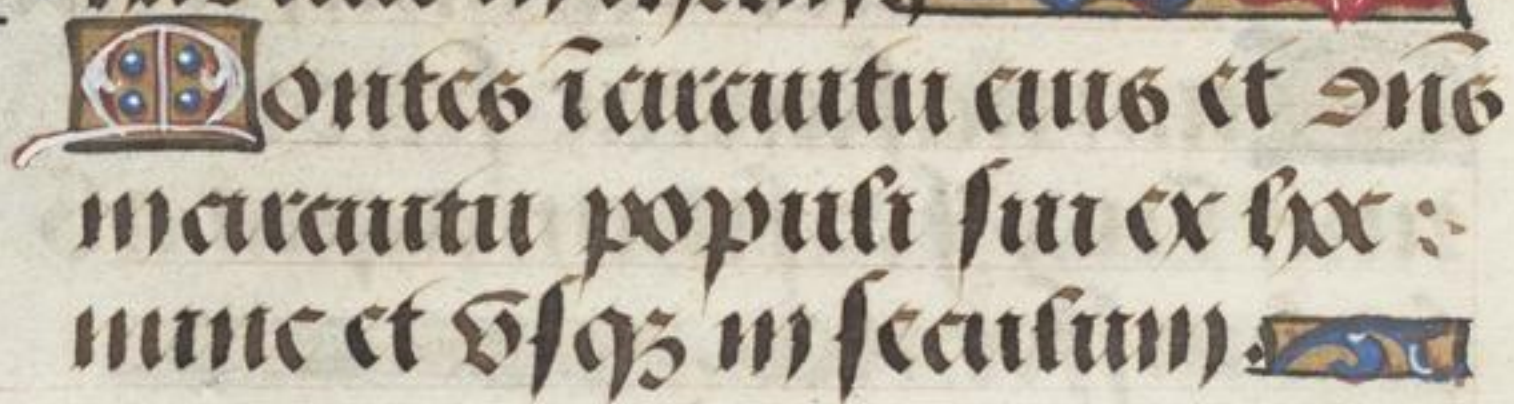 Montes ī circuitu eius et dn̄s
in circuitu populi sui ex hoc :
nunc et vsqꝫ in seculum.